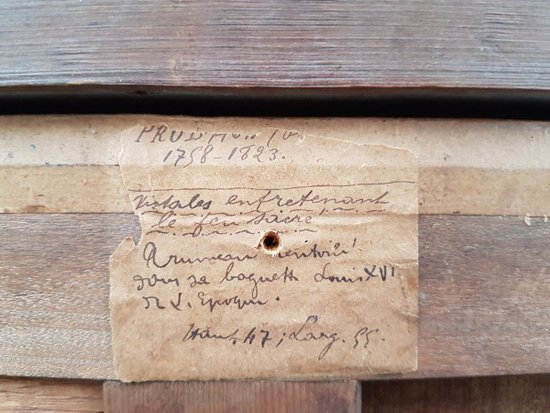 PRUDHON
1758-1823.
Vestales entretenant
le feu sacré
Panneau
dans sa baguette Louis XVI
de l'Epoque.
Haut. 47 ; Larg. 55.